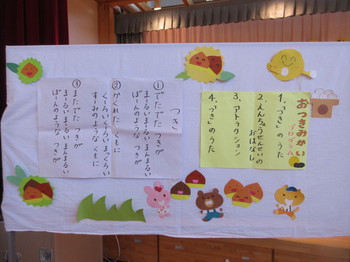 おつきみかい
プログラム
1、「つき」のうた
2、えんちょうせんせいの
おはなし
3、アトラクション
4、「つき」のうた
つき
①
でたでた つきが
まーるい まーるい まんまるい
ぼーんのような つきが
②
かくれた くもに
くろい くろい まっくろい
すみのような くもに
③
またでた つきが
まーるい まーるい まんまるい
ぼーんのような つきが